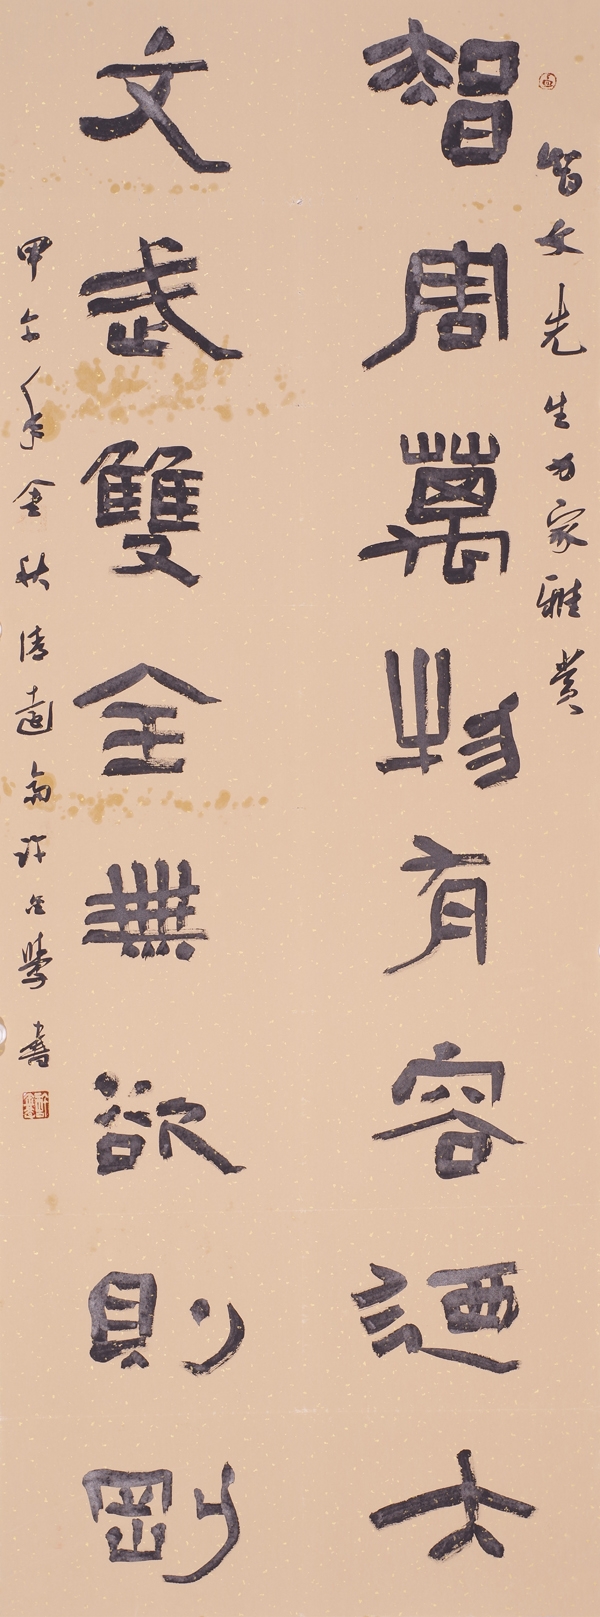 智文先生方家雅賞
智周萬物有容迺大
文武雙全無欲則剛
甲午年金秋清遠書